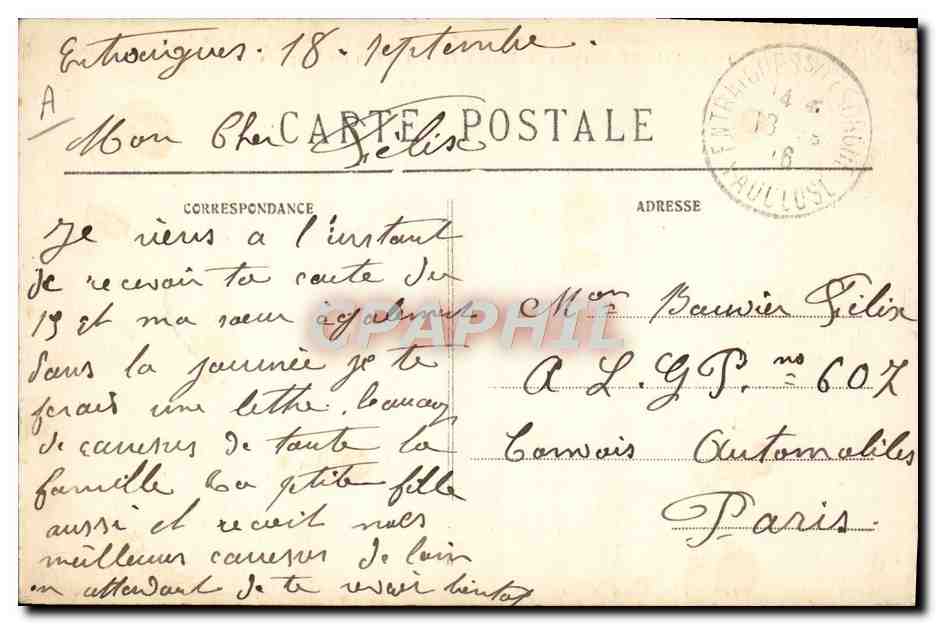 Entraigues. 18. septembre.
A
Mon Cher Félix
CARTE POSTALE
ENTRAIGUES VAUCLUSE
CORRESPONDANCE
ADRESSE
Je viens a l'instant
de recevoir ta carte du
15 et ma sœur également
dans la journée je te
ferais une lettre. beaucoup
de caresses de toute la
famille ta ptite fille
aussi et recoit mes
meilleures caresses de loin
en attendant de te revoir bientot
Mon Bouvier Félix
A L. G P. no 607
Convois Automobiles
Paris.
CPAPHIL